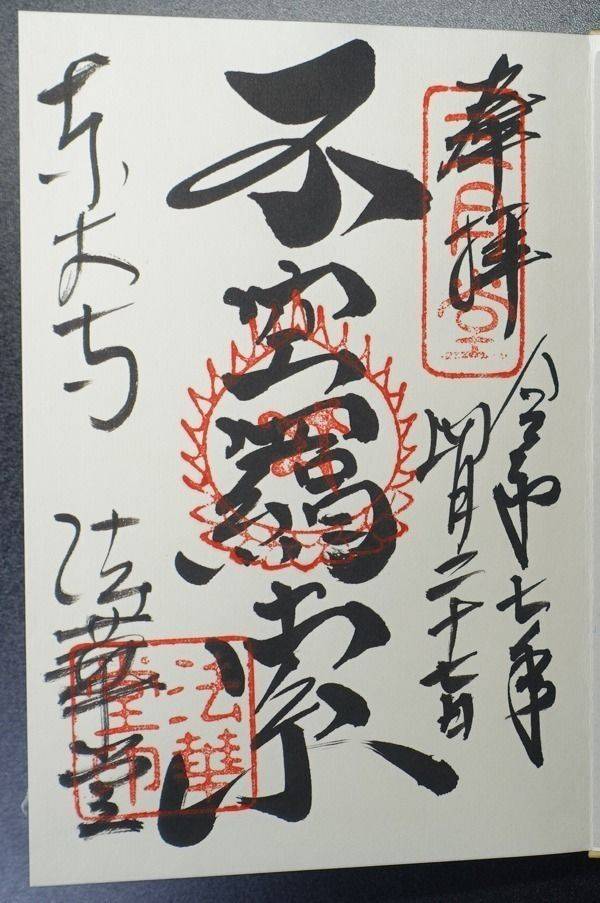 奉拝
令和七年
四月二十七日
不空羂索
東大寺 法華堂
法華
堂印